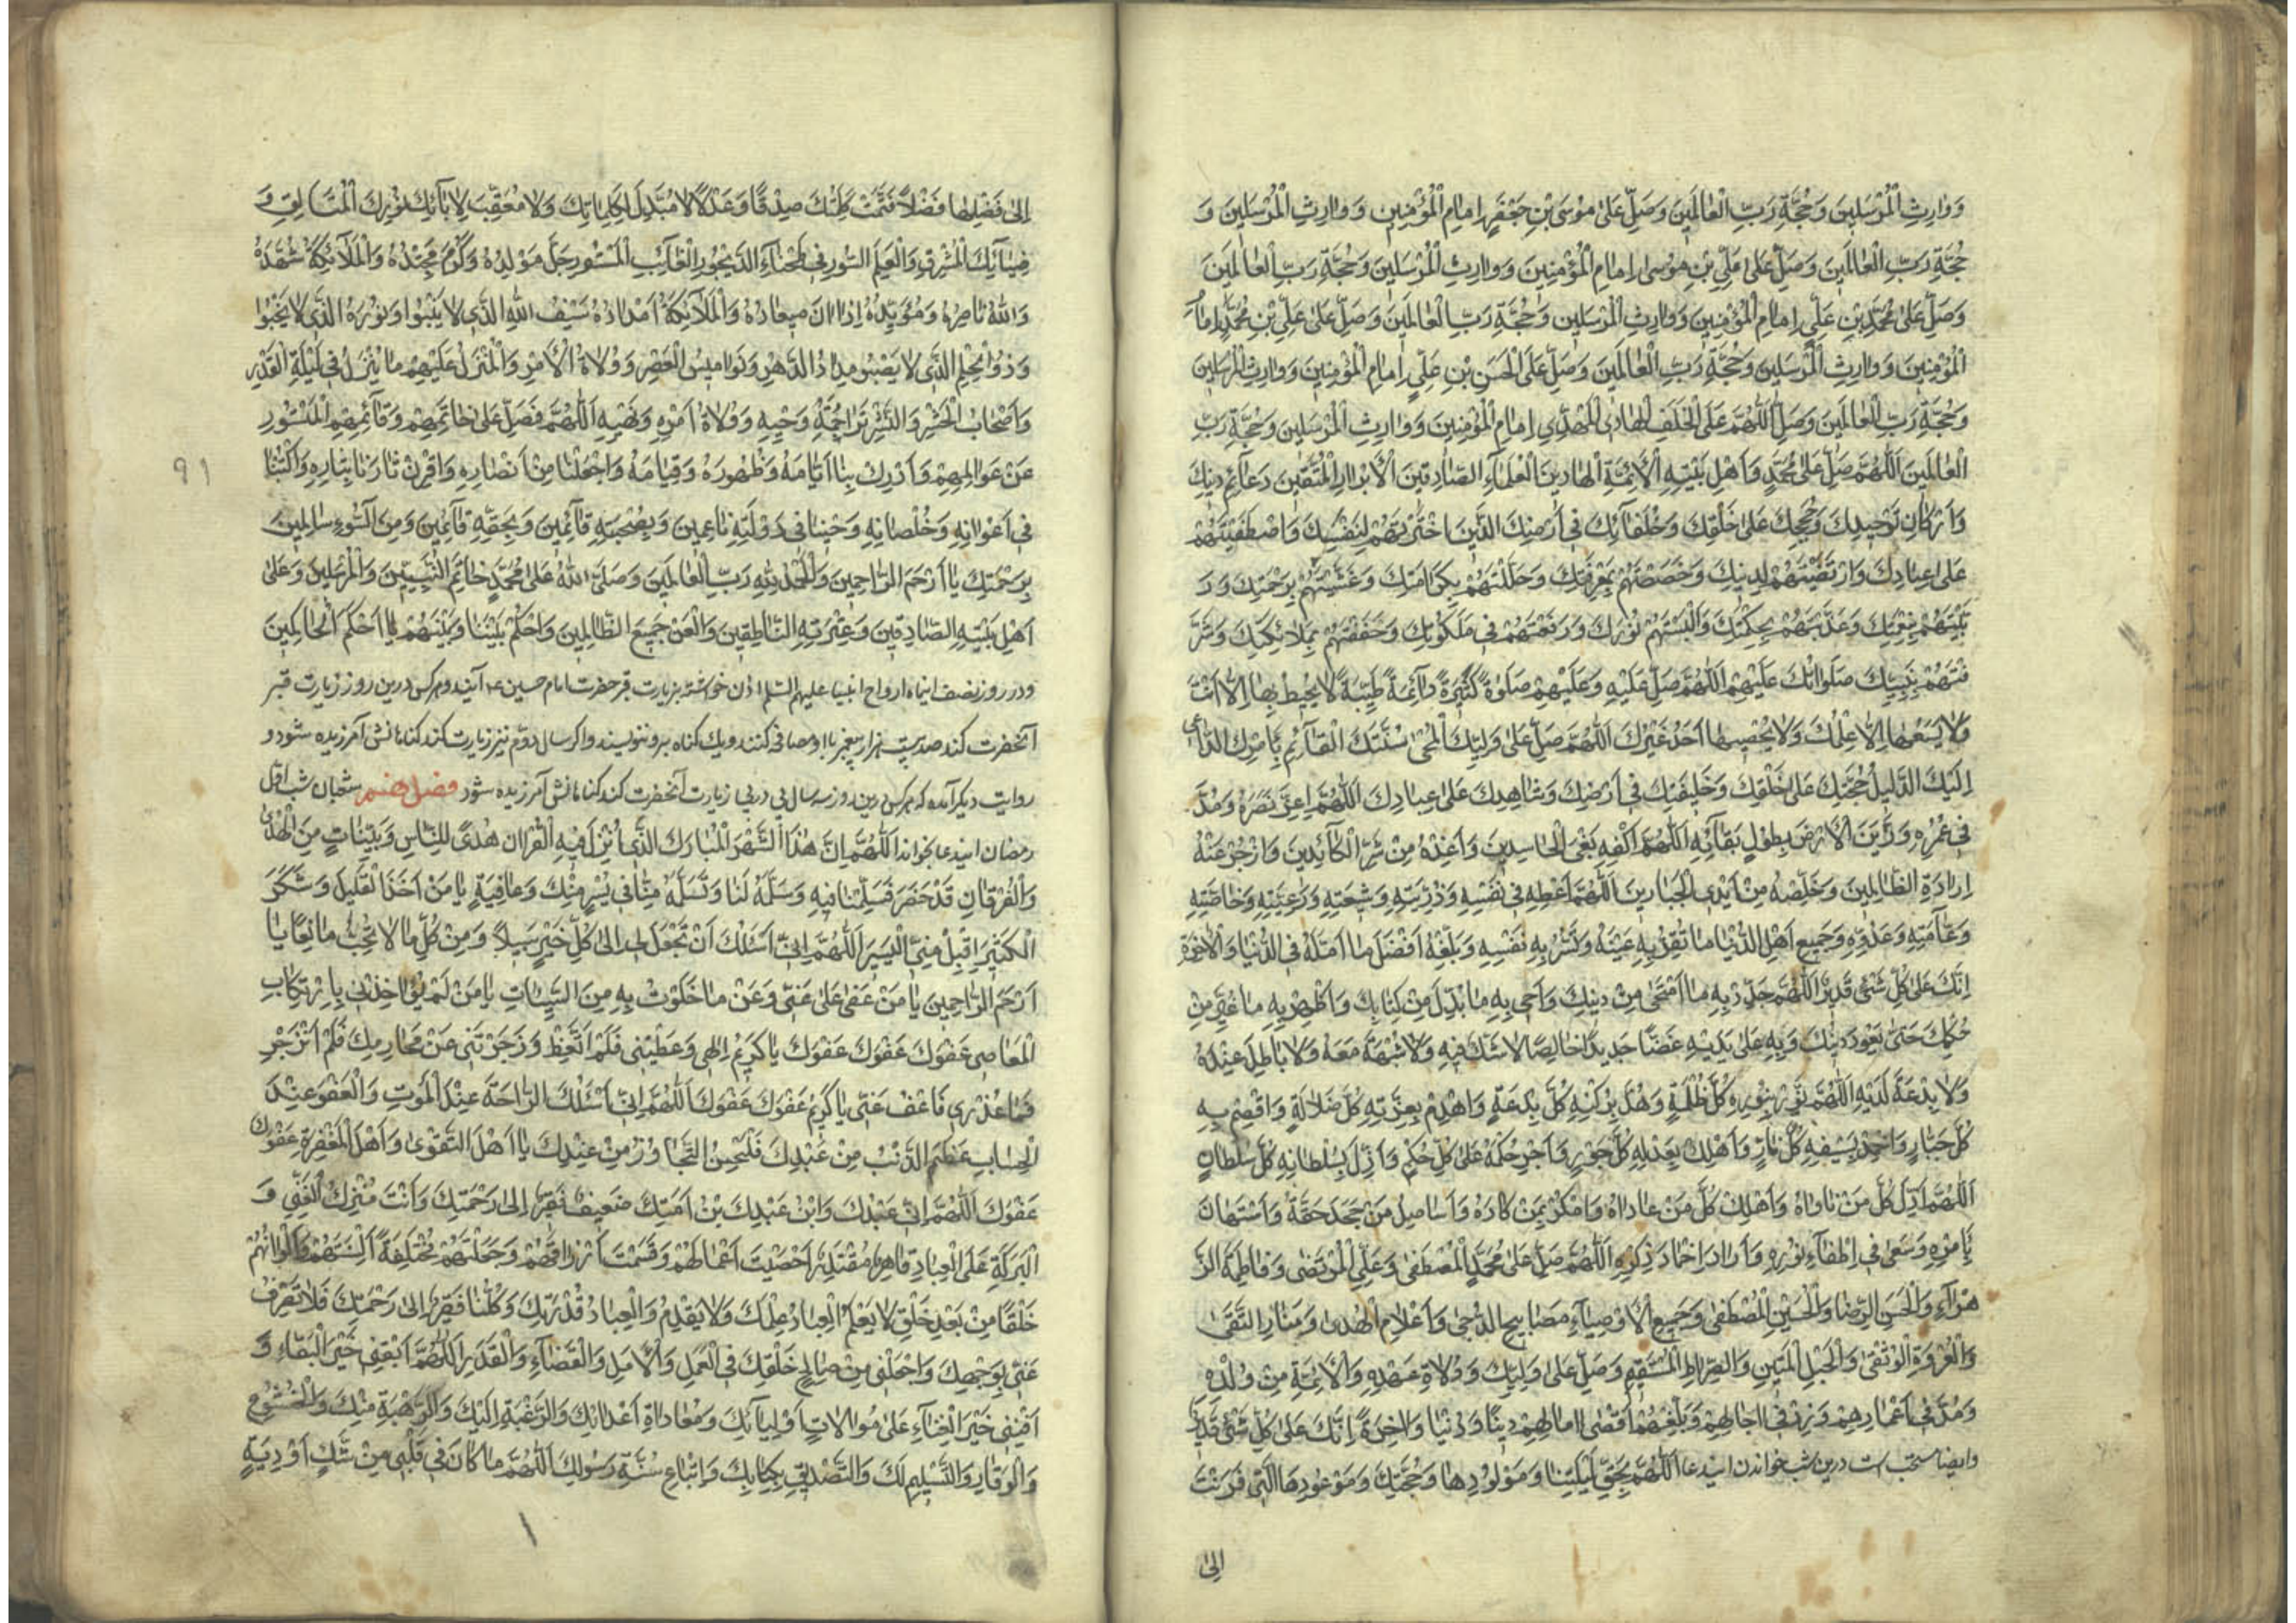 وَوَارِثِ الْمُرْسَلِينَ وَحُجَّةِ رَبِّ الْعَالَمِينَ وَصَلِّ عَلَى مُوسَى بْنِ جَعْفَرٍ اِمَامِ الْمُؤْمِنِينَ وَوَارِثِ الْمُرْسَلِينَ وَ
حُجَّةِ رَبِّ الْعَالَمِينَ وَصَلِّ عَلَى عَلِيِّ بْنِ مُوسَى اِمَامِ الْمُؤْمِنِينَ وَوَارِثِ الْمُرْسَلِينَ وَحُجَّةِ رَبِّ الْعَالَمِينَ
وَصَلِّ عَلَى مُحَمَّدِ بْنِ عَلِيٍّ اِمَامِ الْمُؤْمِنِينَ وَوَارِثِ الْمُرْسَلِينَ وَحُجَّةِ رَبِّ الْعَالَمِينَ وَصَلِّ عَلَى عَلِيِّ بْنِ مُحَمَّدٍ اِمَامِ
الْمُؤْمِنِينَ وَوَارِثِ الْمُرْسَلِينَ وَحُجَّةِ رَبِّ الْعَالَمِينَ وَصَلِّ عَلَى الْحَسَنِ بْنِ عَلِيٍّ اِمَامِ الْمُؤْمِنِينَ وَوَارِثِ الْمُرْسَلِينَ
وَحُجَّةِ رَبِّ الْعَالَمِينَ وَصَلِّ اَللّٰهُمَّ عَلَى الْخَلَفِ الْهَادِي الْمَهْدِيِّ اِمَامِ الْمُؤْمِنِينَ وَوَارِثِ الْمُرْسَلِينَ وَحُجَّةِ رَبِّ
الْعَالَمِينَ اَللّٰهُمَّ صَلِّ عَلَى مُحَمَّدٍ وَاَهْلِ بَيْتِهِ الْاَئِمَّةِ الْهَادِينَ الْعُلَمَآءِ الصَّادِقِينَ الْاَبْرَارِ الْمُتَّقِينَ دَعَآئِمِ دِينِكَ
وَاَرْكَانِ تَوْحِيدِكَ وَحُجَجِكَ عَلَى خَلْقِكَ وَخُلَفَآئِكَ فِي اَرْضِكَ الَّذِينَ اخْتَرْتَهُمْ لِنَفْسِكَ وَاصْطَفَيْتَهُمْ
عَلَى عِبَادِكَ وَارْتَضَيْتَهُمْ لِدِينِكَ وَخَصَصْتَهُمْ بِمَعْرِفَتِكَ وَجَلَّلْتَهُمْ بِكَرَامَتِكَ وَغَشَّيْتَهُمْ بِرَحْمَتِكَ وَرَ
بَّيْتَهُمْ بِنِعْمَتِكَ وَغَذَّيْتَهُمْ بِحِكْمَتِكَ وَاَلْبَسْتَهُمْ نُورَكَ وَرَفَعْتَهُمْ فِي مَلَكُوتِكَ وَحَفَفْتَهُمْ بِمَلَائِكَتِكَ وَشَرَّ
فْتَهُمْ بِنَبِيِّكَ صَلَوَاتُكَ عَلَيْهِمْ اَللّٰهُمَّ صَلِّ عَلَيْهِ وَعَلَيْهِمْ صَلَوٰةً كَثِيرَةً دَآئِمَةً طَيِّبَةً لَا يُحِيطُ بِهَا اِلَّا اَنْتَ
وَلَا يَسَعُهَا اِلَّا عِلْمُكَ وَلَا يُحْصِيهَا اَحَدٌ غَيْرُكَ اَللّٰهُمَّ صَلِّ عَلَى وَلِيِّكَ الْمُحْيِي سُنَّتَكَ الْقَآئِمِ بِاَمْرِكَ الدَّاعِي
اِلَيْكَ الدَّلِيلِ حُجَّتِكَ عَلَى خَلْقِكَ وَخَلِيفَتِكَ فِي اَرْضِكَ وَشَاهِدِكَ عَلَى عِبَادِكَ اَللّٰهُمَّ اَعِزَّ نَصْرَهُ وَمُدَّ
فِي عُمُرِهِ وَزَيِّنِ الْاَرْضَ بِطُولِ بَقَآئِهِ اَللّٰهُمَّ اكْفِهِ بَغْيَ الْحَاسِدِينَ وَاَعِذْهُ مِنْ شَرِّ الْكَآئِدِينَ وَازْجُرْ عَنْهُ
اِرَادَةَ الظَّالِمِينَ وَخَلِّصْهُ مِنْ اَيْدِي الْجَبَّارِينَ اَللّٰهُمَّ اَعْطِهِ فِي نَفْسِهِ وَذُرِّيَّتِهِ وَشِيعَتِهِ وَرَعِيَّتِهِ وَخَاصَّتِهِ
وَعَآمَّتِهِ وَعَدُوِّهِ وَجَمِيعِ اَهْلِ الدُّنْيَا مَا تُقِرُّ بِهِ عَيْنَهُ وَتَسُرُّ بِهِ نَفْسَهُ وَبَلِّغْهُ اَفْضَلَ مَا اَمَّلَهُ فِي الدُّنْيَا وَالْاٰخِرَةِ
اِنَّكَ عَلَى كُلِّ شَيْءٍ قَدِيرٌ اَللّٰهُمَّ جَدِّدْ بِهِ مَا امْتَحَى مِنْ دِينِكَ وَاَحْيِ بِهِ مَا بُدِّلَ مِنْ كِتَابِكَ وَاَظْهِرْ بِهِ مَا غُيِّرَ مِنْ
حُكْمِكَ حَتَّى يَعُودَ دِينُكَ وَبِهِ عَلَى يَدَيْهِ غَضًّا جَدِيدًا خَالِصًا لَا شَكَّ فِيهِ وَلَا شُبْهَةَ مَعَهُ وَلَا بَاطِلَ عِنْدَهُ
وَلَا بِدْعَةَ لَدَيْهِ اَللّٰهُمَّ نَوِّرْ بِنُورِهِ كُلَّ ظُلْمَةٍ وَهُدَّ بِرُكْنِهِ كُلَّ بِدْعَةٍ وَاهْدِمْ بِعِزَّتِهِ كُلَّ ضَلَالَةٍ وَاقْصِمْ بِهِ
كُلَّ جَبَّارٍ وَاَخْمِدْ بِسَيْفِهِ كُلَّ نَارٍ وَاَهْلِكْ بِعَدْلِهِ كُلَّ جَوْرٍ وَاَجْرِ حُكْمَهُ عَلَى كُلِّ حُكْمٍ وَاَذِلَّ بِسُلْطَانِهِ كُلَّ سُلْطَانٍ
اَللّٰهُمَّ اَذِلَّ كُلَّ مَنْ نَاوَاهُ وَاَهْلِكْ كُلَّ مَنْ عَادَاهُ وَامْكُرْ بِمَنْ كَادَهُ وَاسْتَاصِلْ مَنْ جَحَدَ حَقَّهُ وَاسْتَهَانَ
بِاَمْرِهِ وَسَعَى فِي اِطْفَآءِ نُورِهِ وَاَرَادَ اِخْمَادَ ذِكْرِهِ اَللّٰهُمَّ صَلِّ عَلَى مُحَمَّدٍ الْمُصْطَفَى وَعَلِيٍّ الْمُرْتَضَى وَفَاطِمَةَ الزَّ
هْرَآءِ وَالْحَسَنِ الرِّضَا وَالْحُسَيْنِ الْمُصْطَفَى وَجَمِيعِ الْاَوْصِيَآءِ مَصَابِيحِ الدُّجَى وَاَعْلَامِ الْهُدَى وَمَنَارِ التُّقَى
وَالْعُرْوَةِ الْوُثْقَى وَالْحَبْلِ الْمَتِينِ وَالصِّرَاطِ الْمُسْتَقِيمِ وَصَلِّ عَلَى وَلِيِّكَ وَوُلَاةِ عَهْدِهِ وَالْاَئِمَّةِ مِنْ وُلْدِهِ
وَمُدَّ فِي اَعْمَارِهِمْ وَزِدْ فِي اٰجَالِهِمْ وَبَلِّغْهُمْ اَقْصَى اٰمَالِهِمْ دِينًا وَدُنْيَا وَاٰخِرَةً اِنَّكَ عَلَى كُلِّ شَيْءٍ قَدِيرٌ
وایضا مستحب است درین شب خواندن ایندعا اَللّٰهُمَّ بِحَقِّ لَيْلَتِنَا وَمَوْلُودِهَا وَحُجَّتِكَ وَمَوْعُودِهَا الَّتِي قَرَنْتَ
اِلَى
اِلَى فَضْلِهَا فَضْلًا فَتَمَّتْ كَلِمَتُكَ صِدْقًا وَعَدْلًا لَا مُبَدِّلَ لِكَلِمَاتِكَ وَلَا مُعَقِّبَ لِاٰيَاتِكَ نُورُكَ الْمُتَأَلِّقُ وَ
ضِيَآئُكَ الْمُشْرِقُ وَالْعَلَمُ النُّورُ فِي طَخْيَآءِ الدَّيْجُورِ الْغَآئِبُ الْمَسْتُورُ جَلَّ مَوْلِدُهُ وَكَرُمَ مَحْتِدُهُ وَالْمَلَآئِكَةُ شُهَّدُهُ
وَاللهُ نَاصِرُهُ وَمُؤَيِّدُهُ اِذَا اٰنَ مِيعَادُهُ وَالْمَلَآئِكَةُ اَمْدَادُهُ سَيْفُ اللهِ الَّذِي لَا يَنْبُوا وَنُورُهُ الَّذِي لَا يَخْبُوا
وَذُو الْحِلْمِ الَّذِي لَا يَصْبُو مَدَارُ الدَّهْرِ وَنَوَامِيسُ الْعَصْرِ وَوُلَاةُ الْاَمْرِ وَالْمُنَزَّلُ عَلَيْهِمْ مَا يُنَزَّلُ فِي لَيْلَةِ الْقَدْرِ
وَاَصْحَابُ الْحَشْرِ وَالنَّشْرِ تَرَاجِمَةُ وَحْيِهِ وَوُلَاةُ اَمْرِهِ وَنَهْيِهِ اَللّٰهُمَّ فَصَلِّ عَلَى خَاتِمِهِمْ وَقَآئِمِهِمْ الْمَسْتُورِ
عَنْ عَوَالِمِهِمْ وَاَدْرِكْ بِنَا اَيَّامَهُ وَظُهُورَهُ وَقِيَامَهُ وَاجْعَلْنَا مِنْ اَنْصَارِهِ وَاقْرِنْ ثَارَنَا بِثَارِهِ وَاكْتُبْنَا
فِي اَعْوَانِهِ وَخُلَصَائِهِ وَاَحْيِنَا فِي دَوْلَتِهِ نَاعِمِينَ وَبِصُحْبَتِهِ قَآئِمِينَ وَبِحَقِّهِ قَآئِمِينَ وَمِنَ السُّوءِ سَالِمِينَ
بِرَحْمَتِكَ يَا اَرْحَمَ الرَّاحِمِينَ وَالْحَمْدُ لِلّٰهِ رَبِّ الْعَالَمِينَ وَصَلَّى اللهُ عَلَى مُحَمَّدٍ خَاتَمِ النَّبِيِّينَ وَالْمُرْسَلِينَ وَعَلَى
اَهْلِ بَيْتِهِ الصَّادِقِينَ وَعِتْرَتِهِ النَّاطِقِينَ وَالْعَنْ جَمِيعَ الظَّالِمِينَ وَاحْكُمْ بَيْنَنَا وَبَيْنَهُمْ يَا اَحْكَمَ الْحَاكِمِينَ
ودر روز نصف اینماه ارواح انبیا علیهم السلم اذن خواسته بزیارت قبر حضرت امام حسین ع آیند وهرکس درین روز زیارت قبر
آنحضرت کند صد بیست هزار پیغمبر با او مصافحه کنند ویک گناه برو ننویسند واگر سال دوم نیز زیارت کند گناهانش آمرزیده شود و
روایت دیگر آمده که هرکس درین روز سه سال پی در پی زیارت آنحضرت کند گناهانش آمرزیده شود فصل هفتم شعبان شب اول
رمضان ایندعا بخواند اَللّٰهُمَّ اِنَّ هٰذَا الشَّهْرَ الْمُبَارَكَ الَّذِي اُنْزِلَ فِيهِ الْقُرْاٰنُ هُدًى لِلنَّاسِ وَبَيِّنَاتٍ مِنَ الْهُدَى
وَالْفُرْقَانِ قَدْ حَضَرَ فَسَلِّمْنَا فِيهِ وَسَلِّمْهُ لَنَا وَتَسَلَّمْهُ مِنَّا فِي يُسْرٍ مِنْكَ وَعَافِيَةٍ يَا مَنْ اَخَذَ الْقَلِيلَ وَشَكَرَ
الْكَثِيرَ اِقْبَلْ مِنِّي الْيَسِيرَ اَللّٰهُمَّ اِنِّي اَسْئَلُكَ اَنْ تَجْعَلَ لِي اِلَى كُلِّ خَيْرٍ سَبِيلًا وَمِنْ كُلِّ مَا لَا تُحِبُّ مَانِعًا يَا
اَرْحَمَ الرَّاحِمِينَ يَا مَنْ عَفَى عَنِّي وَعَنْ مَا خَلَوْتُ بِهِ مِنَ السَّيِّئَاتِ يَا مَنْ لَمْ يُؤَاخِذْنِي بِارْتِكَابِ
الْمَعَاصِي عَفْوَكَ عَفْوَكَ عَفْوَكَ يَا كَرِيمُ اِلٰهِي وَعَظْتَنِي فَلَمْ اَتَّعِظْ وَزَجَرْتَنِي عَنْ مَحَارِمِكَ فَلَمْ اَنْزَجِرْ
فَمَا عُذْرِي فَاعْفُ عَنِّي يَا كَرِيمُ عَفْوَكَ عَفْوَكَ اَللّٰهُمَّ اِنِّي اَسْئَلُكَ الرَّاحَةَ عِنْدَ الْمَوْتِ وَالْعَفْوَ عِنْدَ
الْحِسَابِ عَظُمَ الذَّنْبُ مِنْ عَبْدِكَ فَلْيَحْسُنِ التَّجَاوُزُ مِنْ عِنْدِكَ يَا اَهْلَ التَّقْوَى وَاَهْلَ الْمَغْفِرَةِ عَفْوَكَ
عَفْوَكَ اَللّٰهُمَّ اِنِّي عَبْدُكَ وَابْنُ عَبْدِكَ بْنُ اَمَتِكَ ضَعِيفٌ فَقِيرٌ اِلَى رَحْمَتِكَ وَاَنْتَ مُنْزِلُ الْغِنَى وَ
الْبَرَكَةِ عَلَى الْعِبَادِ قَاهِرٌ مُقْتَدِرٌ اَحْصَيْتَ اَعْمَالَهُمْ وَقَسَمْتَ اَرْزَاقَهُمْ وَجَعَلْتَهُمْ مُخْتَلِفَةً اَلْسِنَتُهُمْ وَاَلْوَانُهُمْ
خَلْقًا مِنْ بَعْدِ خَلْقٍ لَا يَعْلَمُ الْعِبَادُ عِلْمَكَ وَلَا يَقْدِرُ الْعِبَادُ قُدْرَتَكَ وَكُلُّنَا فَقِيرٌ اِلَى رَحْمَتِكَ فَلَا تَصْرِفْ
عَنِّي بِوَجْهِكَ وَاجْعَلْنِي مِنْ صَالِحِ خَلْقِكَ فِي الْعَمَلِ وَالْاَمَلِ وَالْقَضَآءِ وَالْقَدَرِ اَللّٰهُمَّ اَبْقِنِي خَيْرَ الْبَقَاءِ وَ
اَفْنِنِي خَيْرَ الْفَنَآءِ عَلَى مُوَالَاةِ اَوْلِيَآئِكَ وَمُعَادَاةِ اَعْدَائِكَ وَالرَّغْبَةِ اِلَيْكَ وَالرَّهْبَةِ مِنْكَ وَالْخُشُوعِ
وَالْوَقَارِ وَالتَّسْلِيمِ لَكَ وَالتَّصْدِيقِ بِكِتَابِكَ وَاتِّبَاعِ سُنَّةِ رَسُولِكَ اَللّٰهُمَّ مَا كَانَ فِي قَلْبِي مِنْ شَكٍّ اَوْ رِيبَةٍ
۹۱